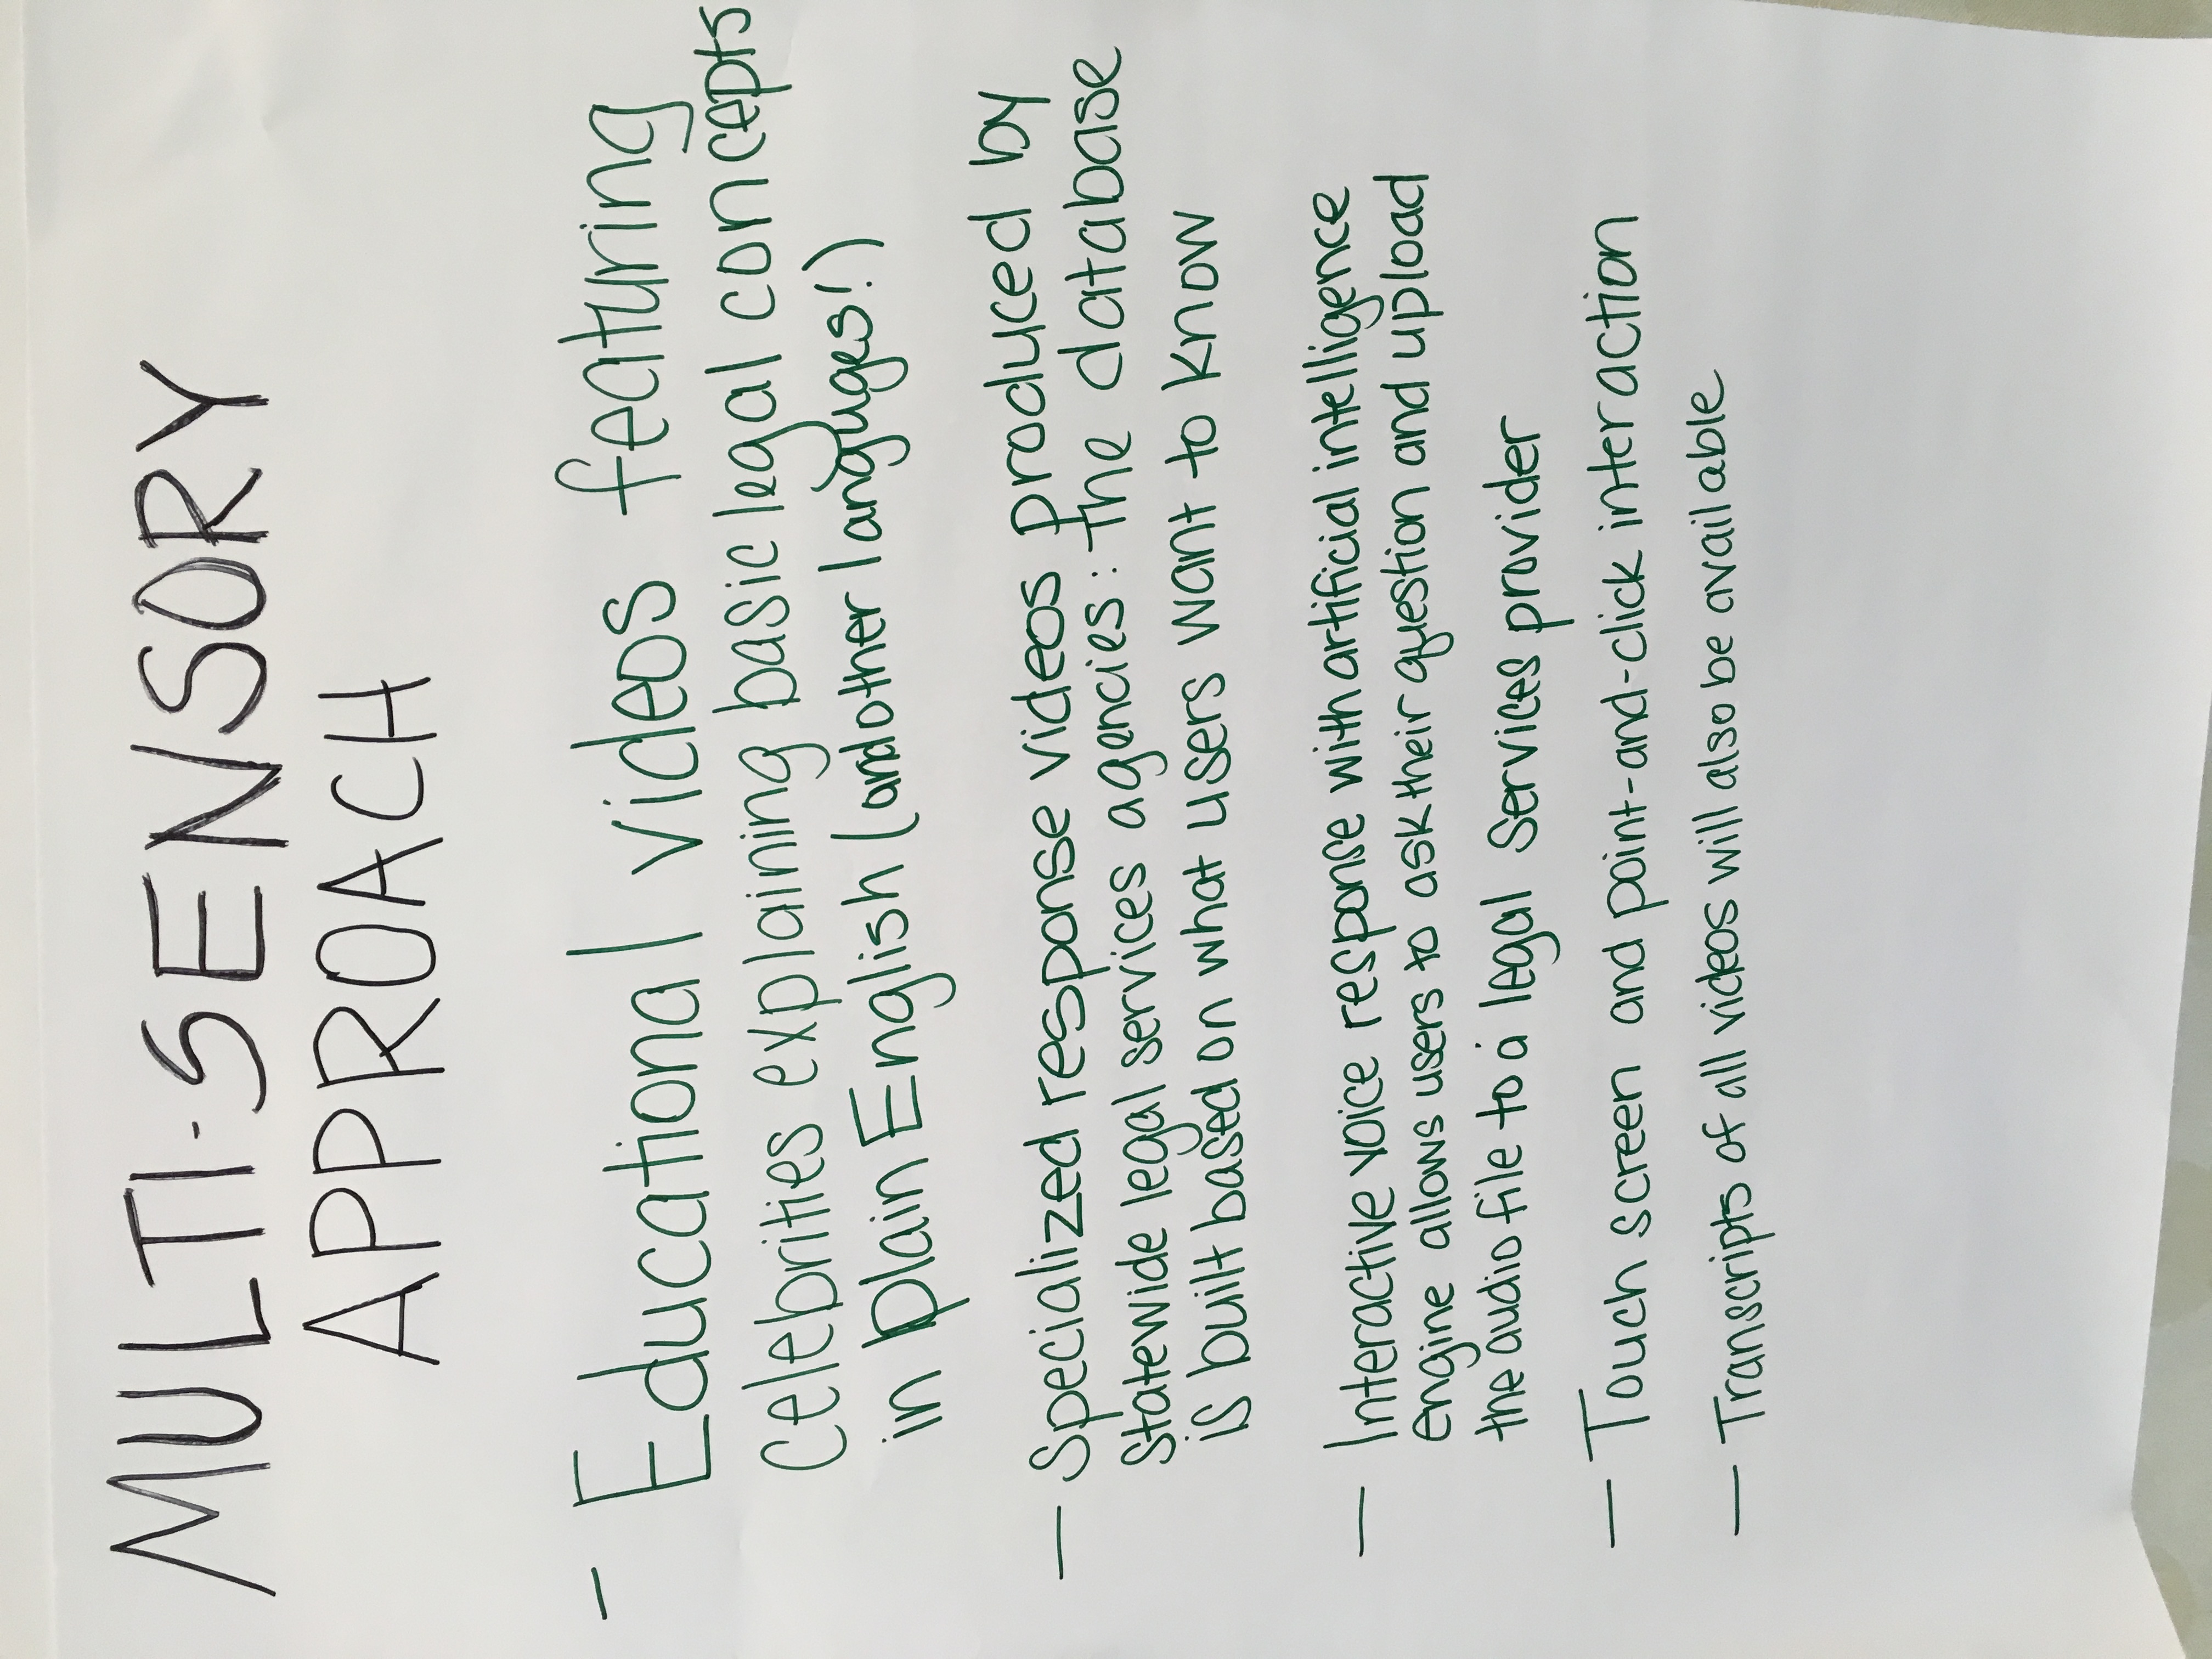 MULTI-SENSORY
APPROACH
- Educational videos featuring
celebrities explaining basic legal concepts
in plain English (and other languges!)
- Specialized response videos produced by
statewide legal services agencies: the database
is built based on what users want to know
- Interactive voice response with artificial intelligence
engine allows users to ask their question and upload
the audio file to a legal services provider
- Touch screen and point-and-click interaction
- Transcripts of all videos will also be available